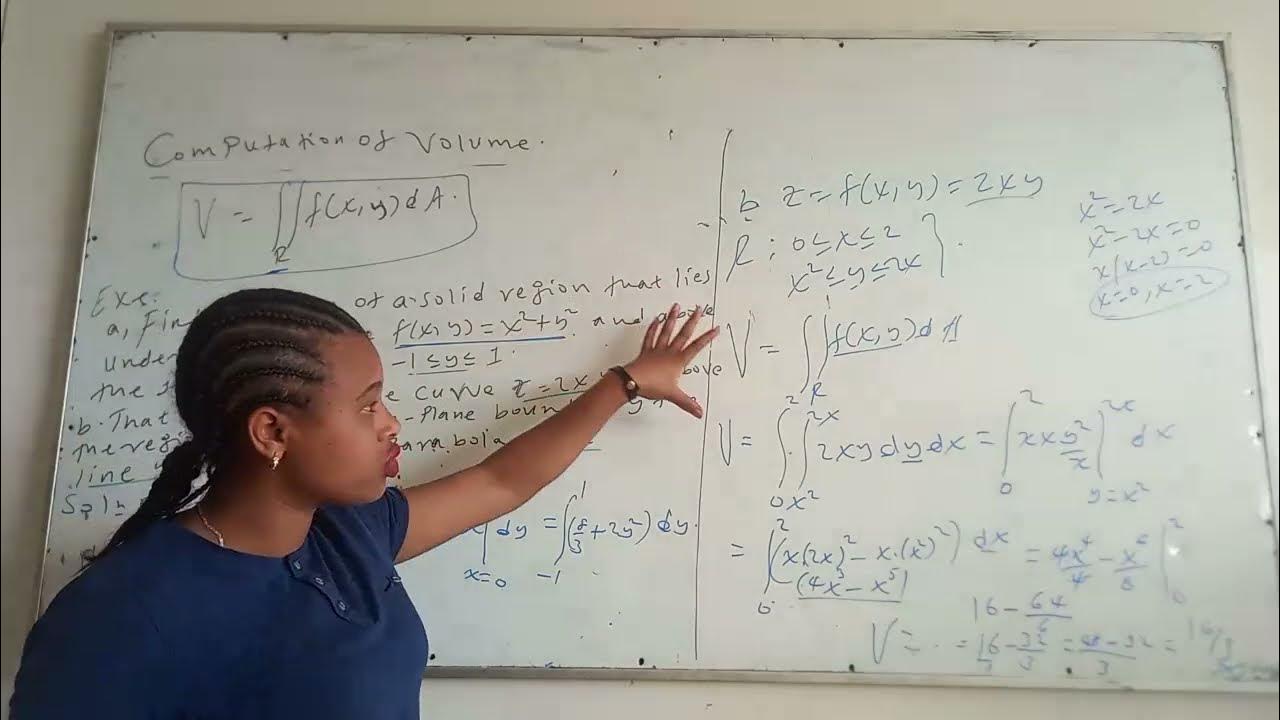 Computation of Volume.
V = ∬_R f(x,y)dA.
Exe:
a, Fin of a solid region that lies
under f(x,y) = x²+y² and above
the -1≤y≤1.
b. That curve z=2xy above
the regi -plane boun
line arabola
Soln
| dy = ∫(8/3+2y²)dy.
x=0 -1 1
b z=f(x,y)=2xy
R: 0≤x≤2
x²≤y≤2x
x²=2x
x²-2x=0
x(x-2)=0
x=0, x=2
V = ∬_R f(x,y)dA
V = ∫_0^2 ∫_{x²}^{2x} 2xy dy dx = ∫_0^2 | ^{2x}_{y=x²} dx
= ∫_0^2 (x(2x)² - x.(x²)²) dx = 4x⁴/4 - x⁶/6 |_0^2
(4x³-x⁵)
16-64/6
V= . = 16-32/3 = 48-32/3 = 16/3